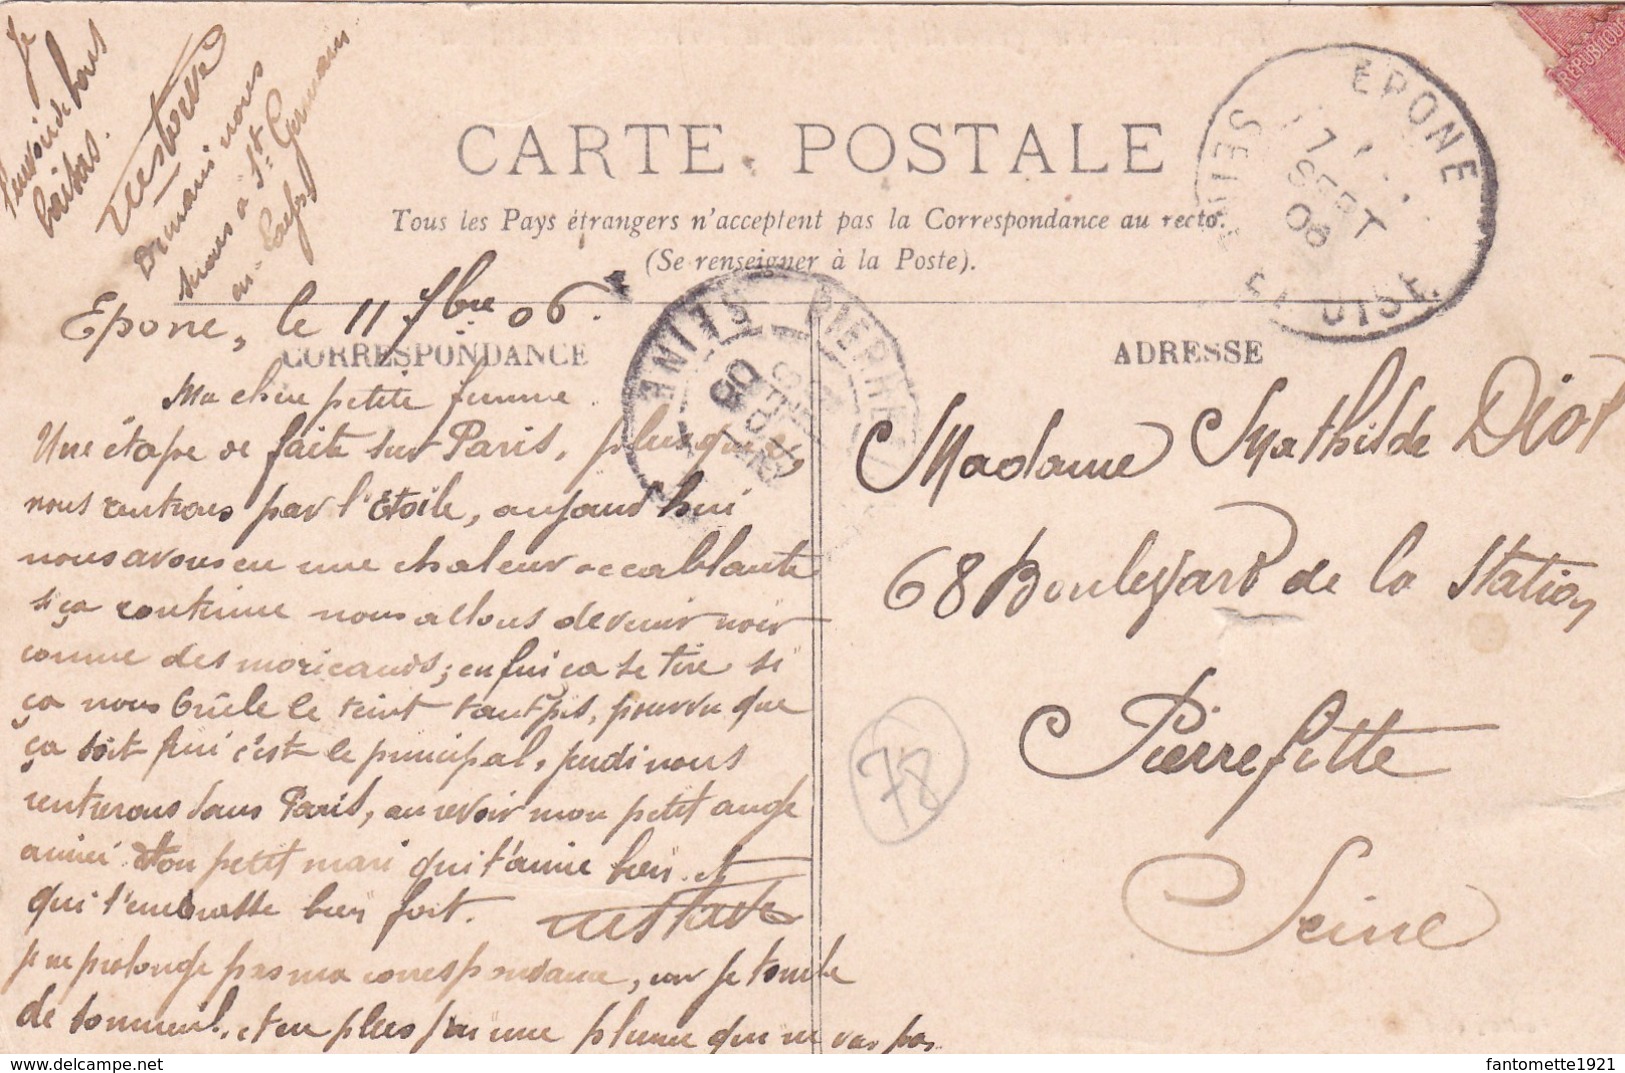 Je
t'envoie de bons
baisers.
Gustave
Demain nous
sommes a St. Germain
en-Laye
CARTE POSTALE
Tous les Pays étrangers n'acceptent pas la Correspondance au recto.
(Se renseigner à la Poste).
REPUBLIQUE
EPONE
SEINE ET OISE
17 SEPT 06
PIERREF
SEINE
Epone, le 11 7bre 06.
CORRESPONDANCE
Ma chère petite femme.
Une étape de faite sur Paris, plus que 2,
nous rentrons par l'Etoile, aujourd'hui
nous avons eu une chaleur accablante
si ça continue nous allons devenir noir
comme des moricauds; enfin ça se tire si
ça nous brûle le teint tant pis, pourvu que
ça soit fini c'est le principal, jeudi nous
rentrerons dans Paris, au revoir mon petit ange
aimé ton petit mari qui t'aime bien et
qui t'embrasse bien fort. Gustave
je ne prolonge pas ma correspondance, car je tombe
de sommeil, et en plus j'ai une plume qui ne va pas
ADRESSE
Madame Mathilde Diot
68 Boulevard de la Station
Pierrefitte
Seine
78
fantomette1921